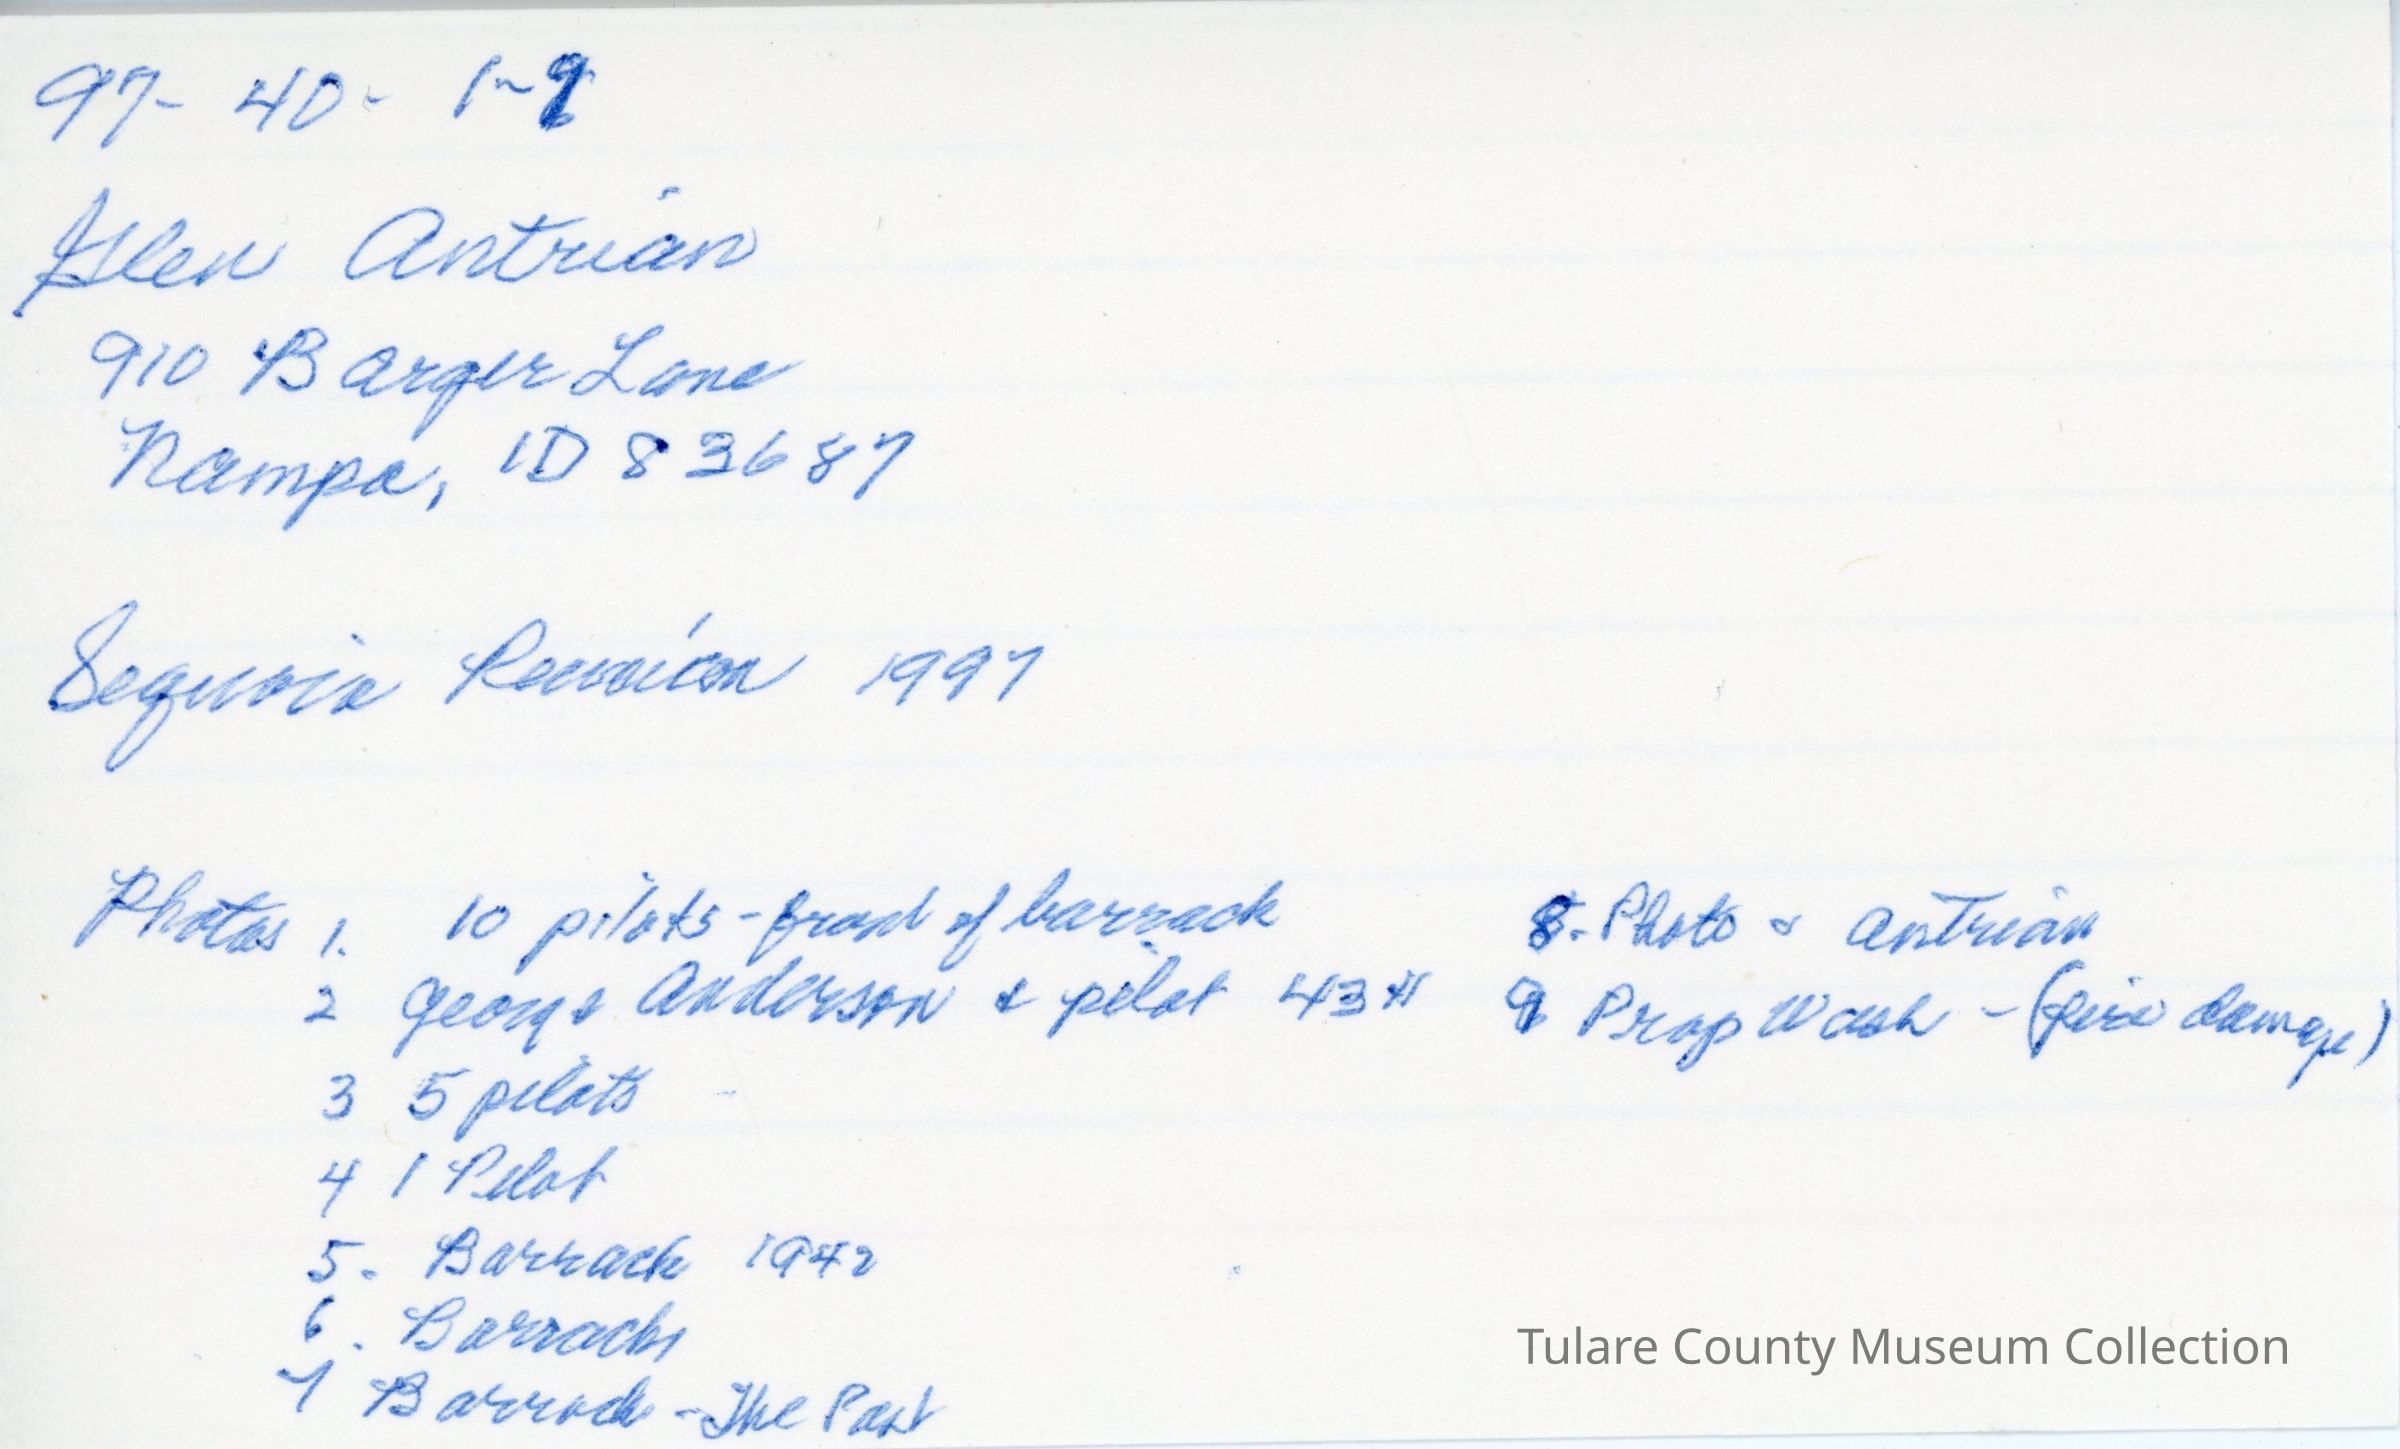 97- 40- 1-9
Glen Antrian
910 Barger Lane
Nampa, ID 83687
Sequoia Reunion 1997
Photos 1. 10 pilots - front of barrack
2 George Anderson & pilot 43
3 5 pilots
4 1 Pilot
5. Barrack 1942
6. Barracks
7 Barrack - The Past
8. Photo Antrian
9 Prop Wash - (fire damage)
Tulare County Museum Collection